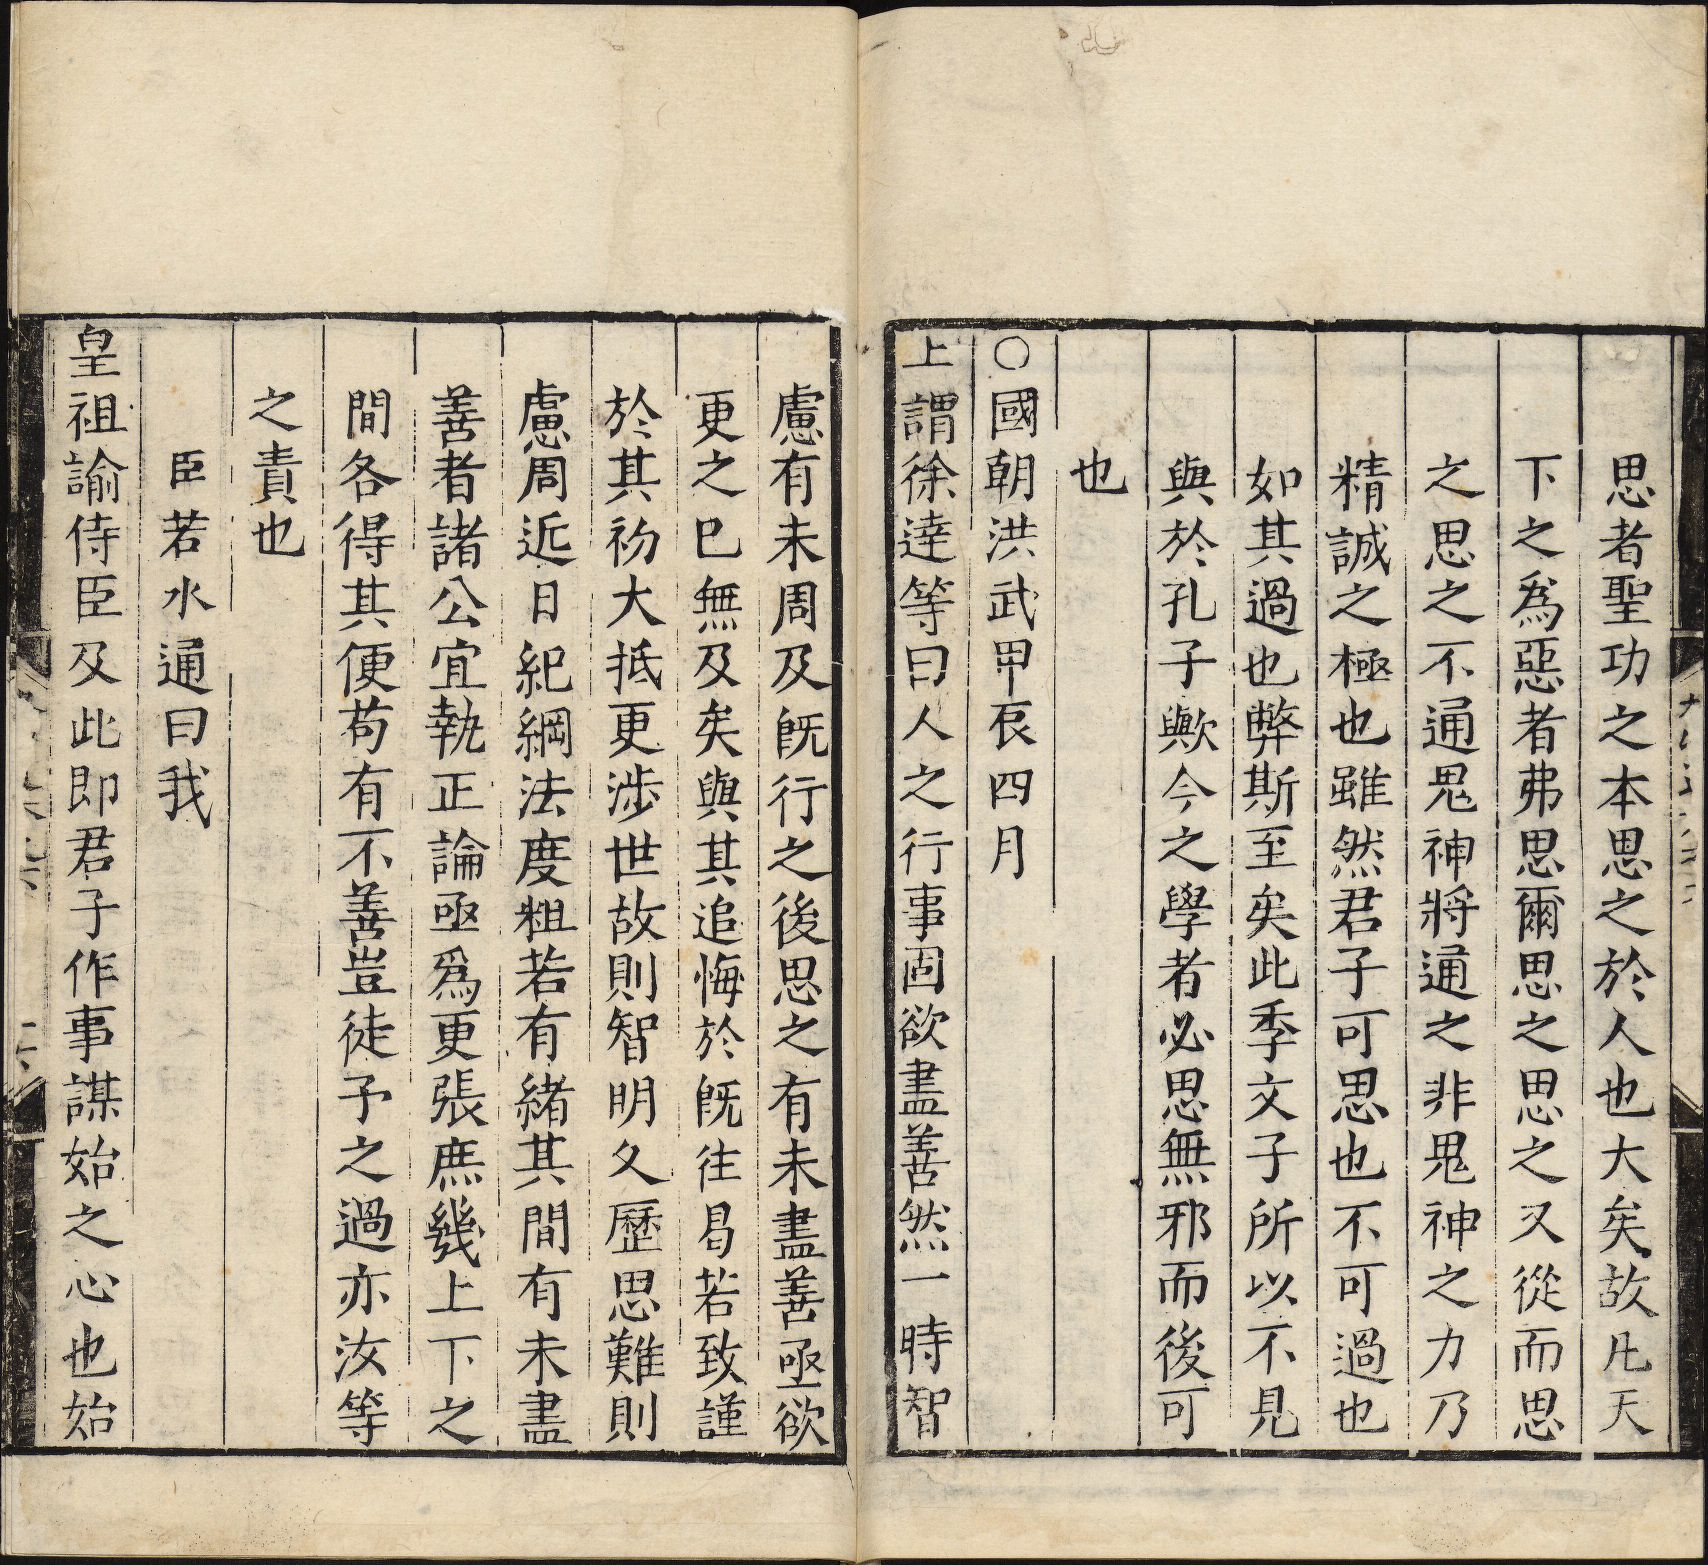 思者聖功之本思之於人也大矣故凡天
下之爲惡者弗思爾思之思之又從而思
之思之不通鬼神將通之非鬼神之力乃
精誠之極也雖然君子可思也不可過也
如其過也弊斯至矣此季文子所以不見
與於孔子歟今之學者必思無邪而後可
也
○國朝洪武甲辰四月
上謂徐達等曰人之行事固欲盡善然一時智
慮有未周及既行之後思之有未盡善亟欲
更之已無及矣與其追悔於既往曷若致謹
於其初大抵更涉世故則智明久歷思難則
慮周近日紀綱法度粗若有緒其間有未盡
善者諸公宜執正論亟爲更張庶幾上下之
間各得其便苟有不善豈徒予之過亦汝等
之責也
臣若水通曰我
皇祖諭侍臣及此即君子作事謀始之心也始